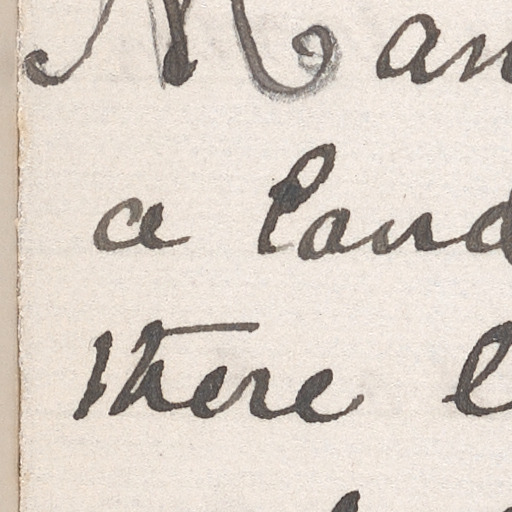 M an
a land
there l